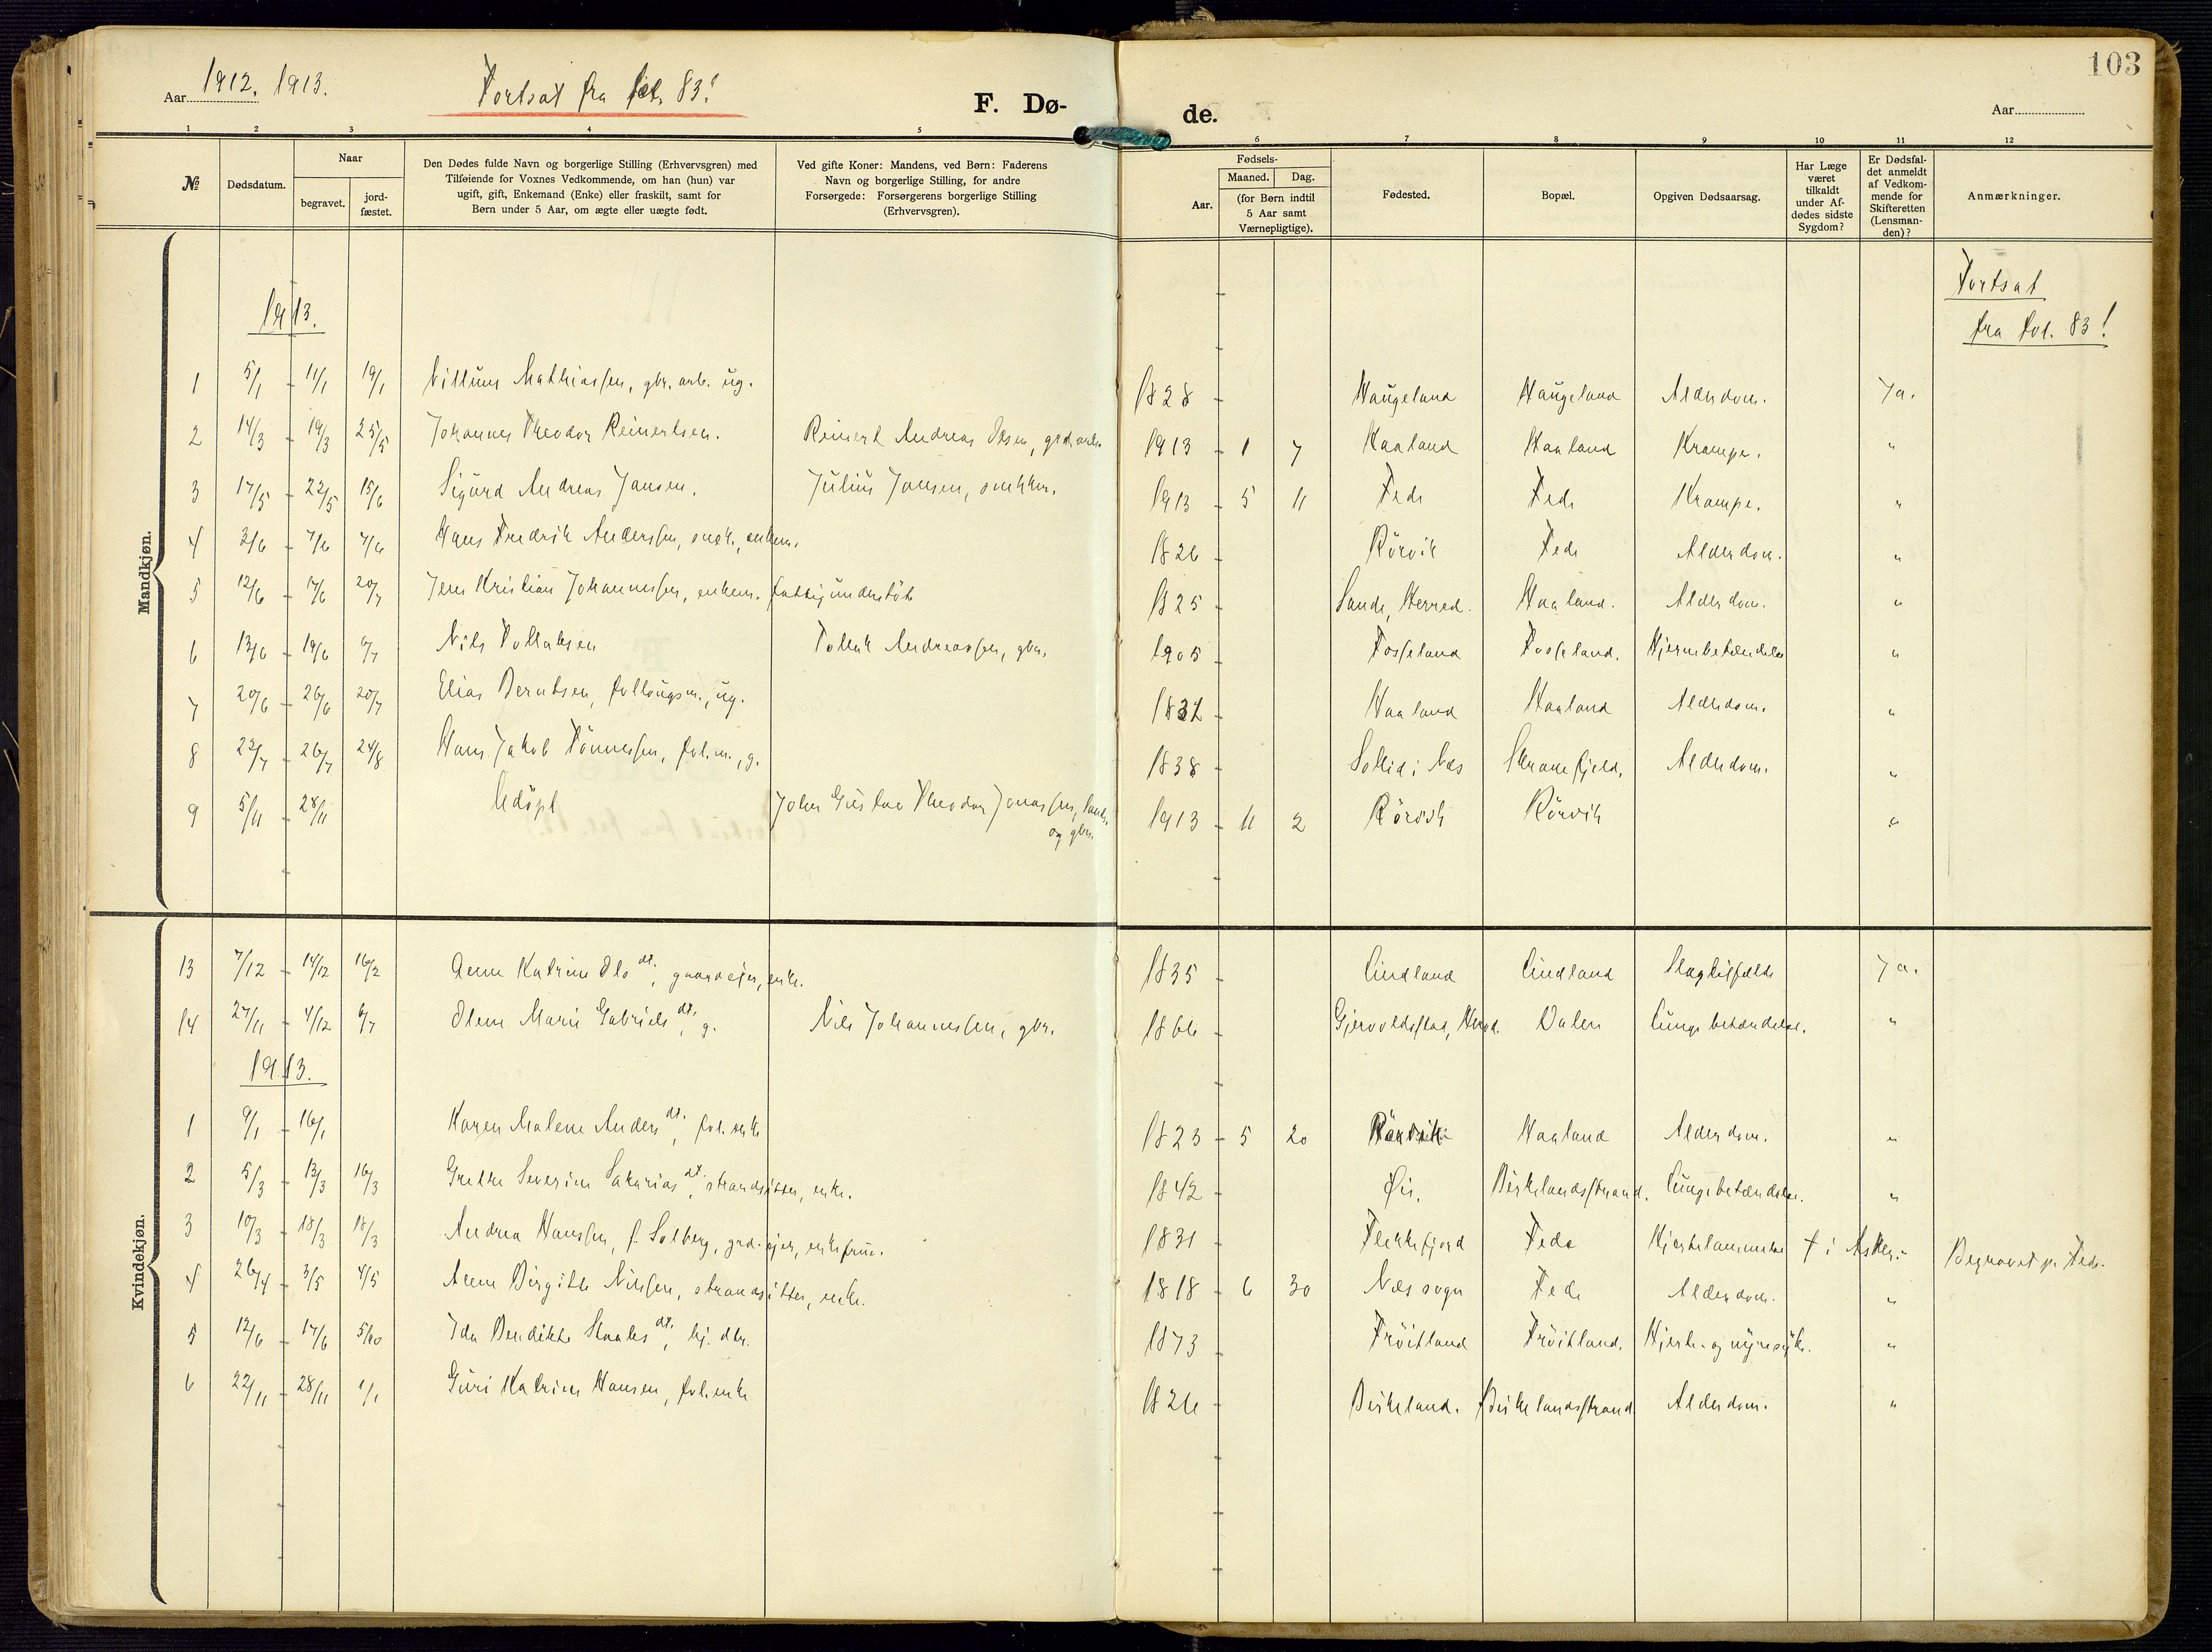 103
Aar 1912. 1913. Fortsat fra fol. 83! F. Dø- de. Aar
1 2 3 4 5 6 7 8 9 10 11 12
№
Dødsdatum.
Naar
begravet.
jord-
fæstet.
Den Dødes fulde Navn og borgerlige Stilling (Erhvervsgren) med
Tilføiende for Voxnes Vedkommende, om han (hun) var
ugift, gift, Enkemand (Enke) eller fraskilt, samt for
Børn under 5 Aar, om ægte eller uægte født.
Ved gifte Koner: Mandens, ved Børn: Faderens
Navn og borgerlige Stilling, for andre
Forsørgede: Forsørgerens borgerlige Stilling
(Erhvervsgren).
Fødsels-
Aar.
Maaned. Dag.
(for Børn indtil
5 Aar samt
Værnepligtige).
Fødested.
Bopæl.
Opgiven Dødsaarsag.
Har Læge
været
tilkaldt
under Af-
dødes sidste
Sygdom?
Er Dødsfal-
det anmeldt
af Vedkom-
mende for
Skifteretten
(Lensman-
den)?
Anmærkninger.
Fortsat
fra fol. 83!
Mandkjøn.
1913.
1 5/1 - 11/1 19/1 Villum Mathiassen, gbr. arb. ug. 1828 - Haugeland Haugeland Alderdom. Ja.
2 14/3 - 19/3 25/5 Johannes Theodor Reinertsen. Reinert Andreas Olsen, grd. arb. 1913 - 1 7 Haaland Haaland Krampe. "
3 17/5 - 22/5 15/6 Sigurd Andreas Jansen. Julius Jansen, snekker. 1913 - 5 11 Feda Feda Krampe. "
4 2/6 - 7/6 7/6 Hans Fredrik Anderssen, snek., enkem. 1826 Rörvik Feda Alderdom. "
5 12/6 - 17/6 20/7 Jens Kristian Johannessen, enkem. fattigunderstöt 1825 - Sande, Herred. Haaland. Alderdom. "
6 13/6 - 19/6 6/7 Nils Tollaksen Tollak Andreassen, gbr. 1905 - Fosseland Fosseland. Hjernebetændelse "
7 20/6 - 26/6 20/7 Elias Berntsen, follaugsm., ug. 1832 - Haaland Haaland Alderdom. "
8 22/7 - 26/7 24/8 Hans Jakob Tönnessen, fol.m., g. 1838 - Sollid i Næs Skranefjeld. Alderdom. "
9 5/11 - 28/11 Udöpt John Gustav Theodor Jonassen, landh.
og gbr. 1913 - 11 2 Rörvik Rörvik "
Kvindekjøn.
13 7/12 - 14/12 16/2 Anne Katrine Ols dt., gaardejer, enke. 1835 - Lindland Lindland Slagtilfælde Ja.
14 27/11 - 4/12 6/7 Olene Marie Gabriels dt., g. Nils Johannessen, gbr. 1866 - Gjervoldstad, Herred. Dalen Lungebetændelse. "
1913.
1 9/1 - 16/1 Karen Malene Anders dt., fol. enke 1823 - 5 20 Rörvik Haaland Alderdom. "
2 5/3 - 13/3 16/3 Grethe Severine Sakarias dt., strandsitter, enke. 1842 - Öie. Birkelandsstrand. Lungebetændelse. "
3 10/3 - 18/3 18/3 Andrea Hanssen, f. Solberg, grd. ejer, enkefrue. 1831 Flekkefjord Feda Hjertelammelse † i Asker. - Begravet p. Feda.
4 26/4 - 3/5 4/5 Anne Birgithe Nilssen, strandsitter, enke. 1818 - 6 30 Næs sogn Feda Alderdom. "
5 12/6 - 17/6 5/10 Ida Bendikte Staales dt., hj. dtr. 1873 - Fröitland Fröitland. Hjerte- og nyresyk. "
6 22/11 - 28/11 1/1 Guri Katrine Hansen, fol. enke 1826 - Birkeland. Birkelandsstrand Alderdom. "